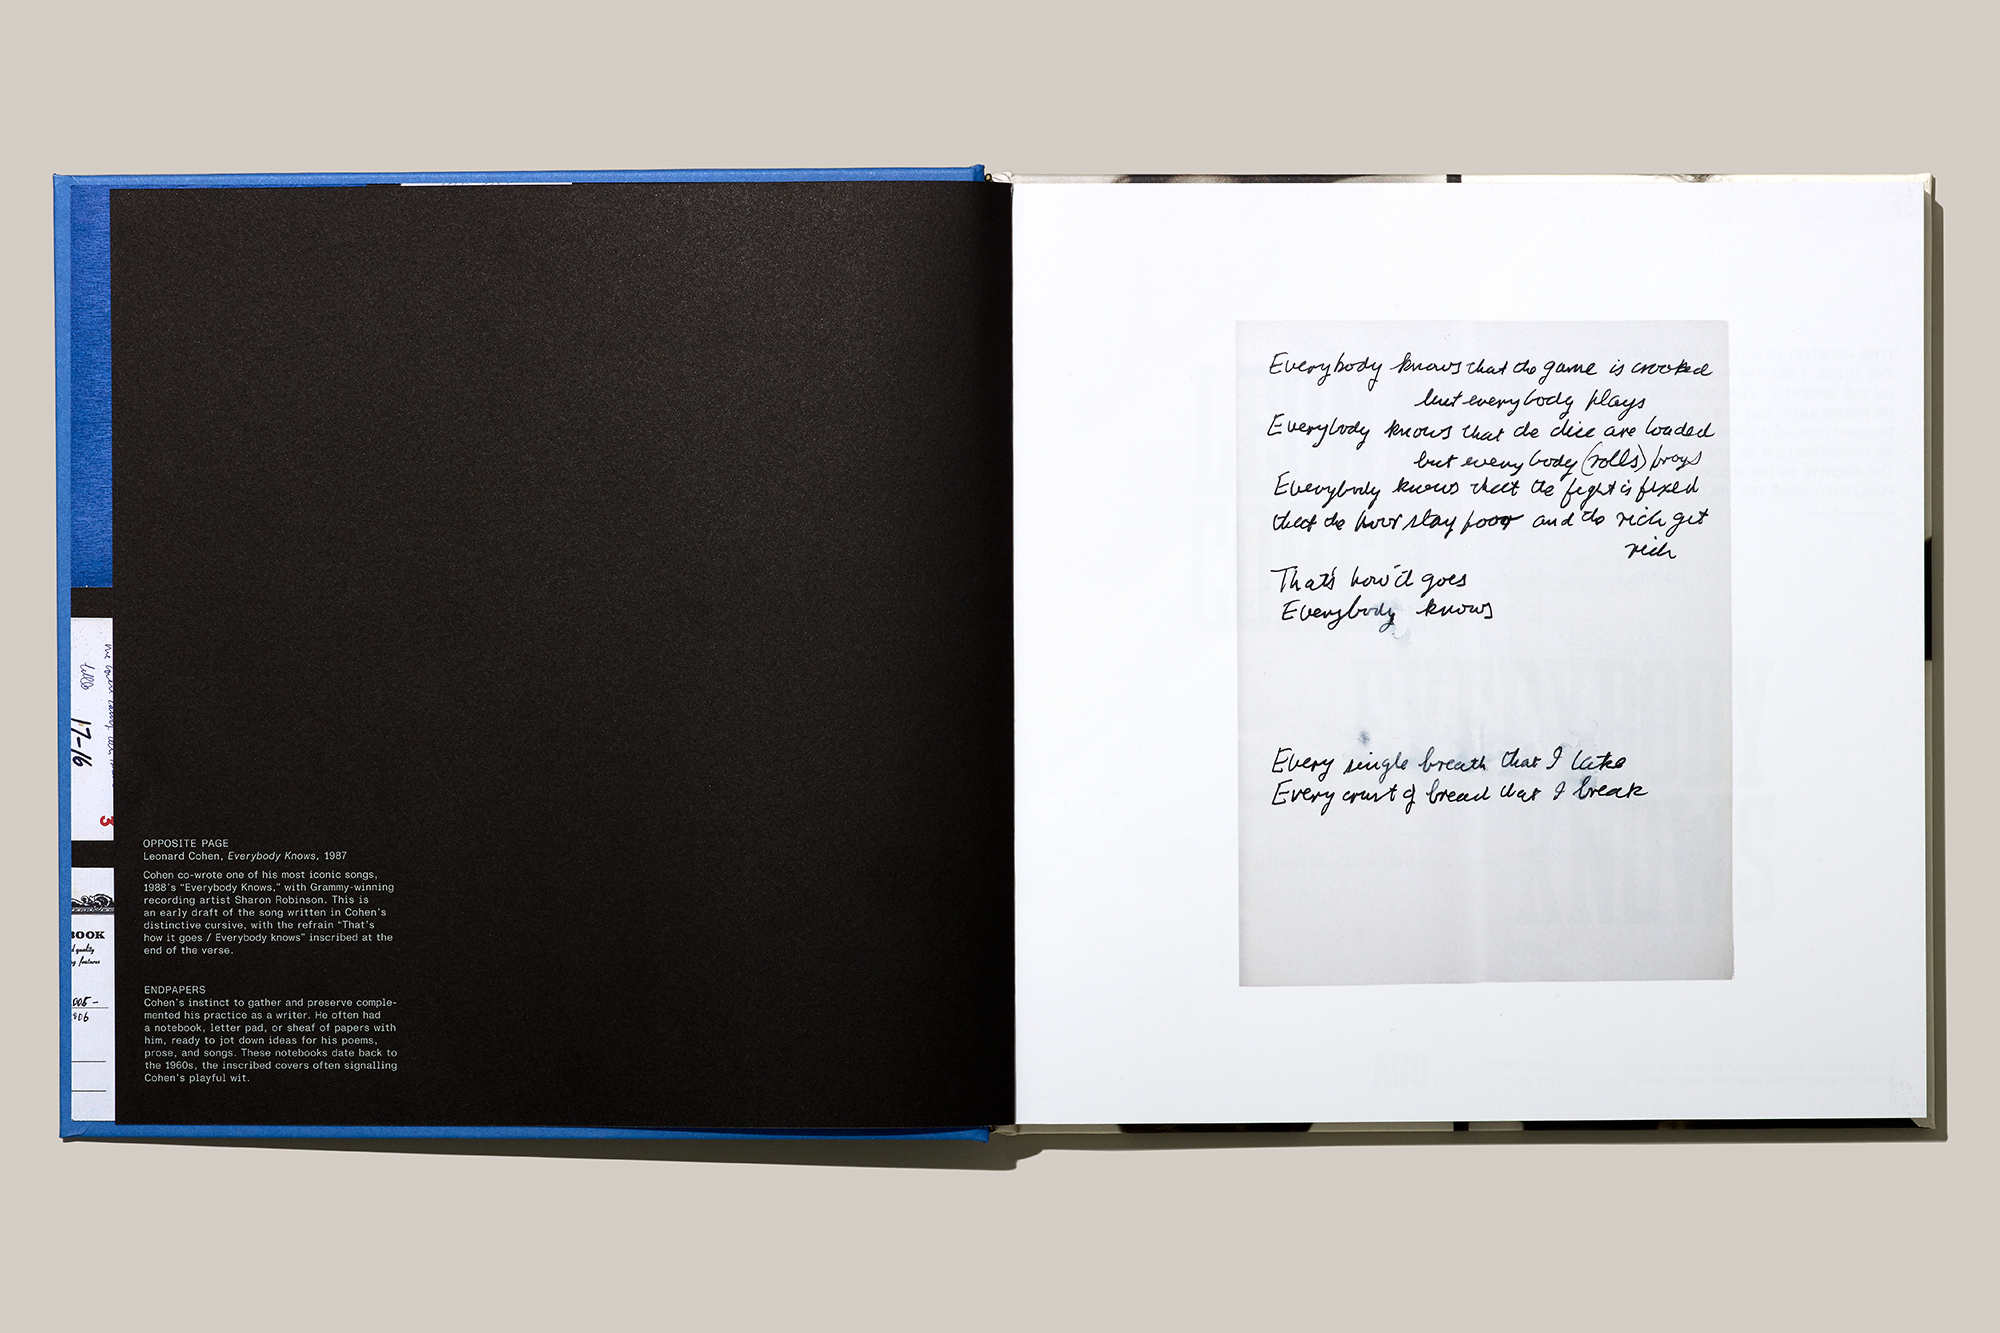 17-16
3
BOOK
quality
features
006
OPPOSITE PAGE
Leonard Cohen, Everybody Knows, 1987
Cohen co-wrote one of his most iconic songs,
1988's “Everybody Knows,” with Grammy-winning
recording artist Sharon Robinson. This is
an early draft of the song written in Cohen's
distinctive cursive, with the refrain “That's
how it goes / Everybody knows” inscribed at the
end of the verse.
ENDPAPERS
Cohen's instinct to gather and preserve comple-
mented his practice as a writer. He often had
a notebook, letter pad, or sheaf of papers with
him, ready to jot down ideas for his poems,
prose, and songs. These notebooks date back to
the 1960s, the inscribed covers often signalling
Cohen's playful wit.
Everybody knows that the game is crooked
but everybody plays
Everybody knows that the dice are loaded
but everybody (rolls)
Everybody knows that the fight is fixed
that the poor stay poor and the rich get
rich
That's how it goes
Everybody knows
Every single breath that I take
Every crust of bread that I break